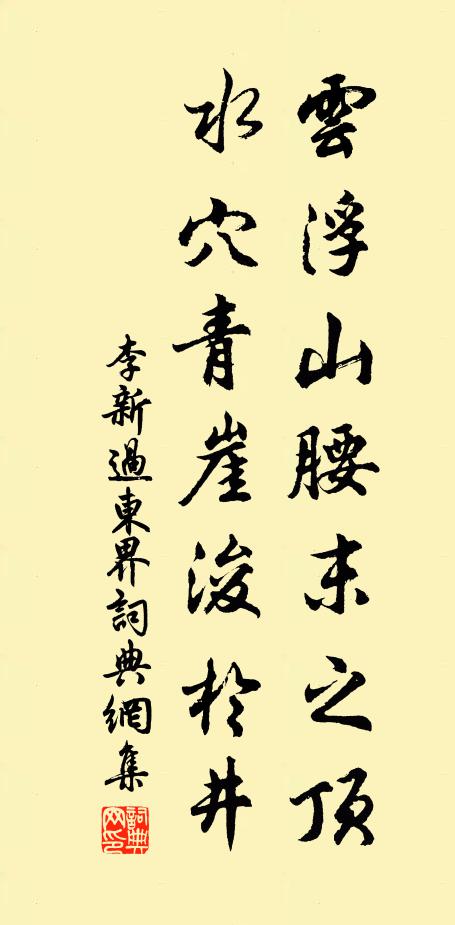 雲浮山腰未之頂
水穴青崖浚於井
李新過東界詞典網集
詞典網印